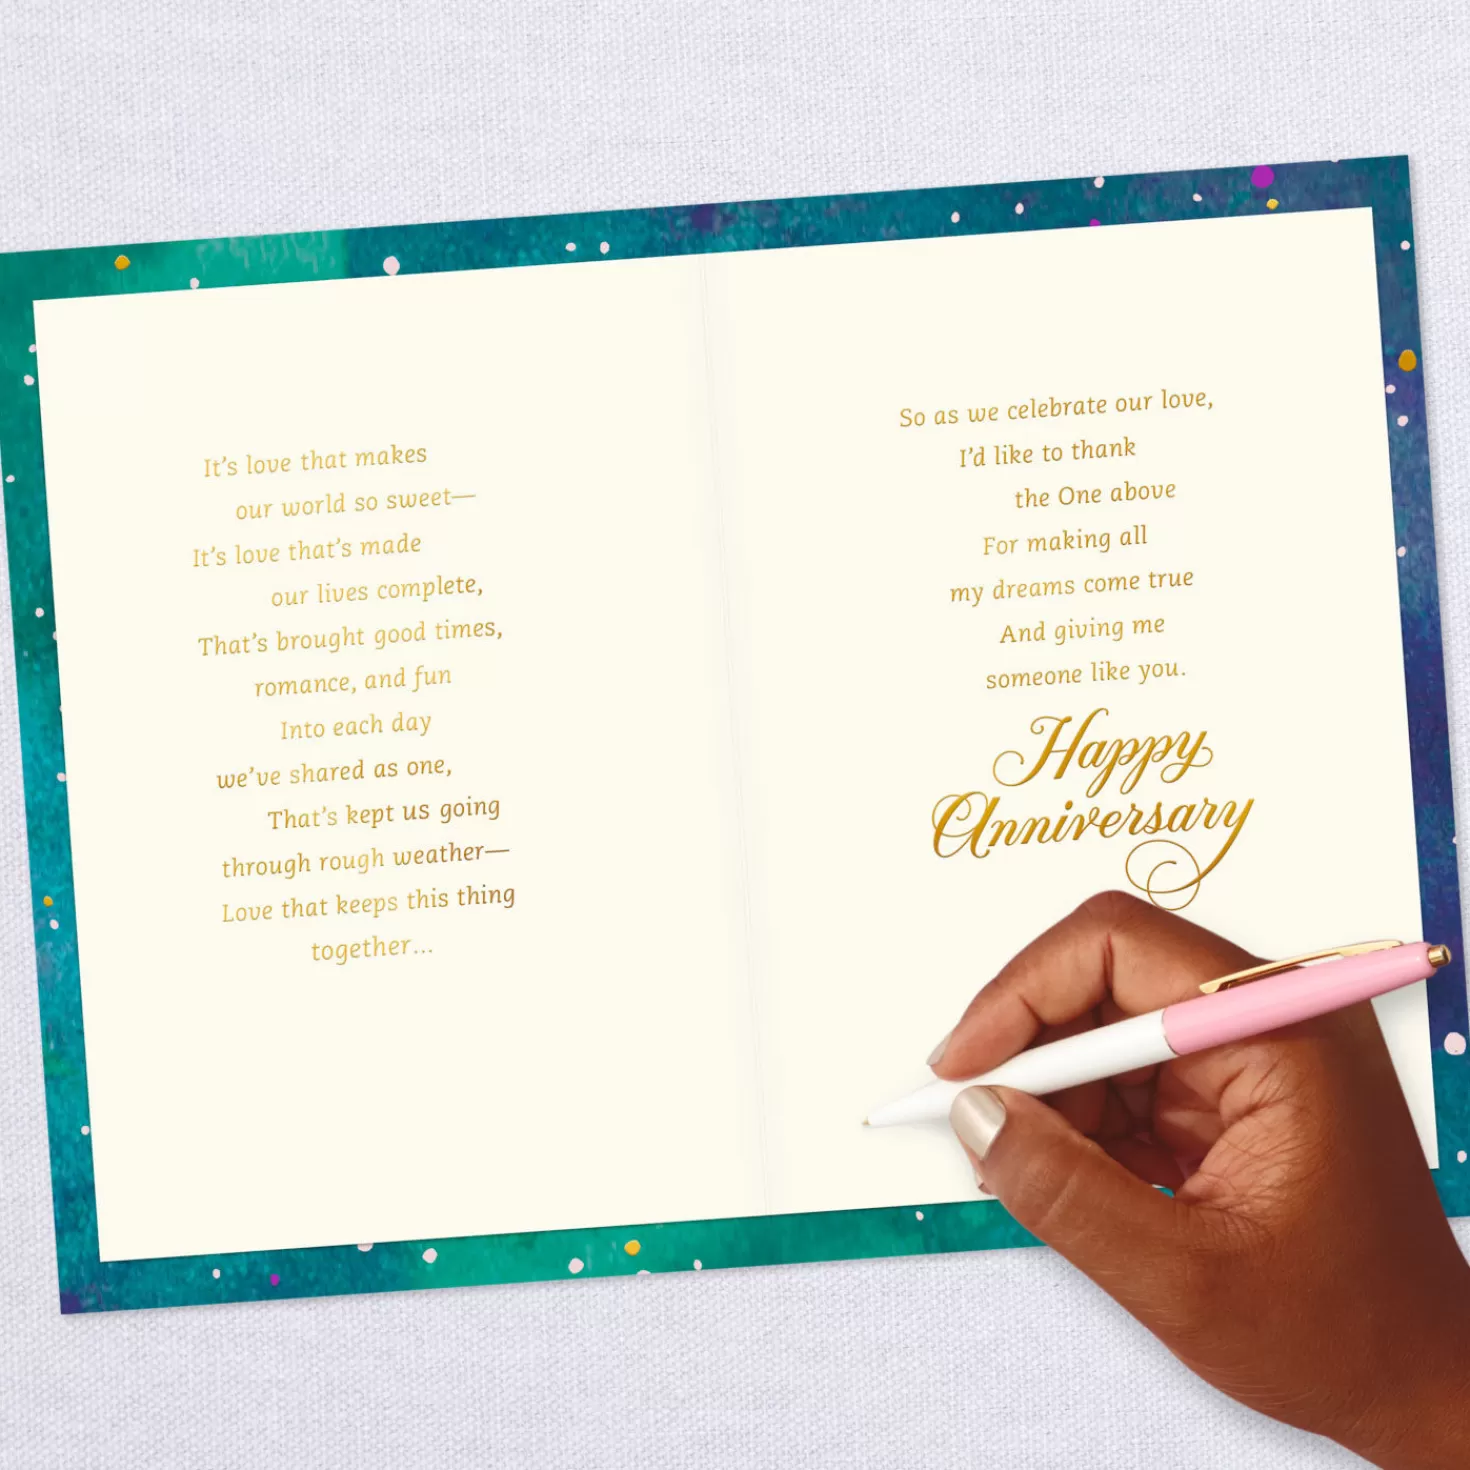 It’s love that makes
our world so sweet—
It’s love that’s made
our lives complete,
That’s brought good times,
romance, and fun
Into each day
we’ve shared as one,
That’s kept us going
through rough weather—
Love that keeps this thing
together...
So as we celebrate our love,
I’d like to thank
the One above
For making all
my dreams come true
And giving me
someone like you.
Happy
Anniversary